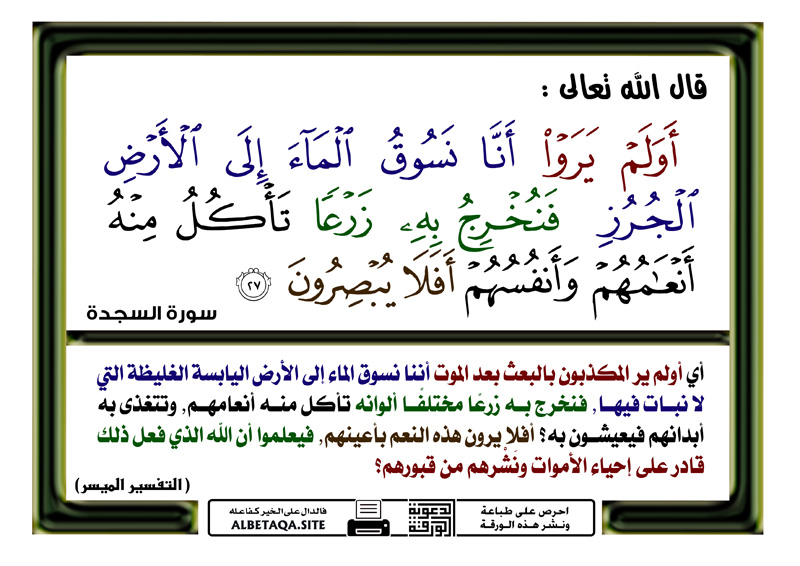 قال الله تعالى :
أَوَلَمۡ يَرَوۡاْ أَنَّا نَسُوقُ ٱلۡمَآءَ إِلَى ٱلۡأَرۡضِ
ٱلۡجُرُزِ فَنُخۡرِجُ بِهِۦ زَرۡعٗا تَأۡكُلُ مِنۡهُ
أَنۡعَٰمُهُمۡ وَأَنفُسُهُمۡ أَفَلَا يُبۡصِرُونَ ٢٧
سورة السجدة
أي أولم ير المكذبون بالبعث بعد الموت أننا نسوق الماء إلى الأرض اليابسة الغليظة التي
لا نبات فيها, فنخرج به زرعًا مختلفًا ألوانه تأكل منه أنعامهم, وتتغذى به
أبدانهم فيعيشون به؟ أفلا يرون هذه النعم بأعينهم, فيعلموا أن الله الذي فعل ذلك
قادر على إحياء الأموات ونَشْرهم من قبورهم؟
( التفسير الميسر )
احرص على طباعة
ونشر هذه الورقة
الورقة الدعوية
فالدال على الخير كفاعله
ALBETAQA.SITE